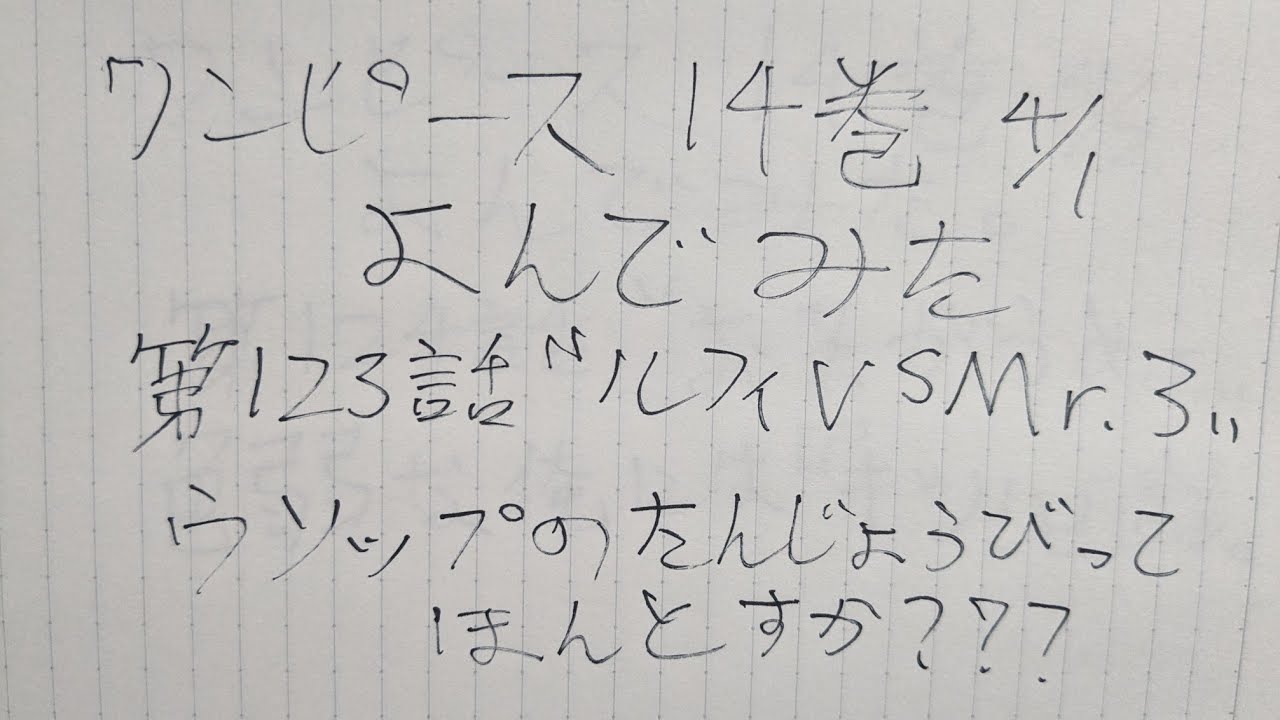 ワンピース 14巻 4/1
よんでみた
第123話〝ルフィVSMr.3〟
ウソップのたんじょうびって
ほんとすか???